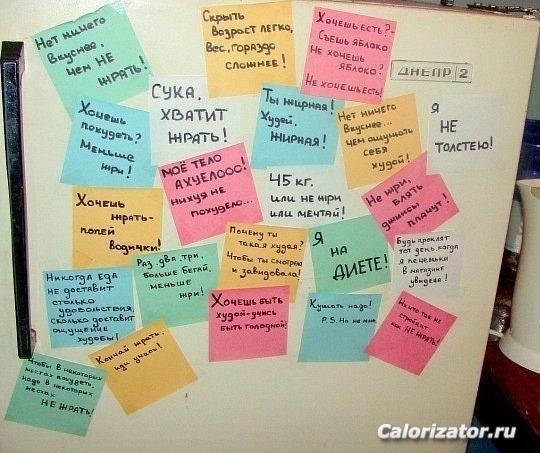 Нет ничего
вкуснее,
чем НЕ
ЖРАТЬ!
Скрыть
возраст легко,
Вес, гораздо
сложнее!
Хочешь есть?-
Съешь яблоко
Не хочешь
яблоко?
Не хочешь есть!
ДНЕПР 2
Хочешь
похудеть?
Меньше
жри!
СУКА,
ХВАТИТ
ЖРАТЬ!
Ты жирная!
Худей,
ЖИРНАЯ!
Нет ничего
Вкуснее...
чем ощущать
себя
худой!
Я
НЕ
ТОЛСТЕЮ!
МОЁ ТЕЛО
АХУЕЛООО!
нихуя не
похудело...
Хочешь
жрать-
попей
водички!
45 кг.
или не жри
или мечтай!
Не жри,
блять
джинсы
плачут!
Никогда еда
не доставит
столько
удовольствия,
сколько доставит
ощущение
худобы!
Раз, два, три,
больше бегай,
меньше
жри!
Почему ты
такая худая?
Чтобы ты смотрела
и завидовала!
Я
НА
ДИЕТЕ!
Будь проклят
тот день, когда
я печеньки
в магазине
увидела!
Хочешь быть
худой-учись
быть голодной!
Кушать надо!
P.S. Но не мне
Ничто так не
стройнит,
как НЕ ЖРАТЬ!
Чтобы в некоторых
местах похудеть,
надо в некоторых
местах
НЕ ЖРАТЬ!
Кончай жрать,
иди учись!
Calorizator.ru